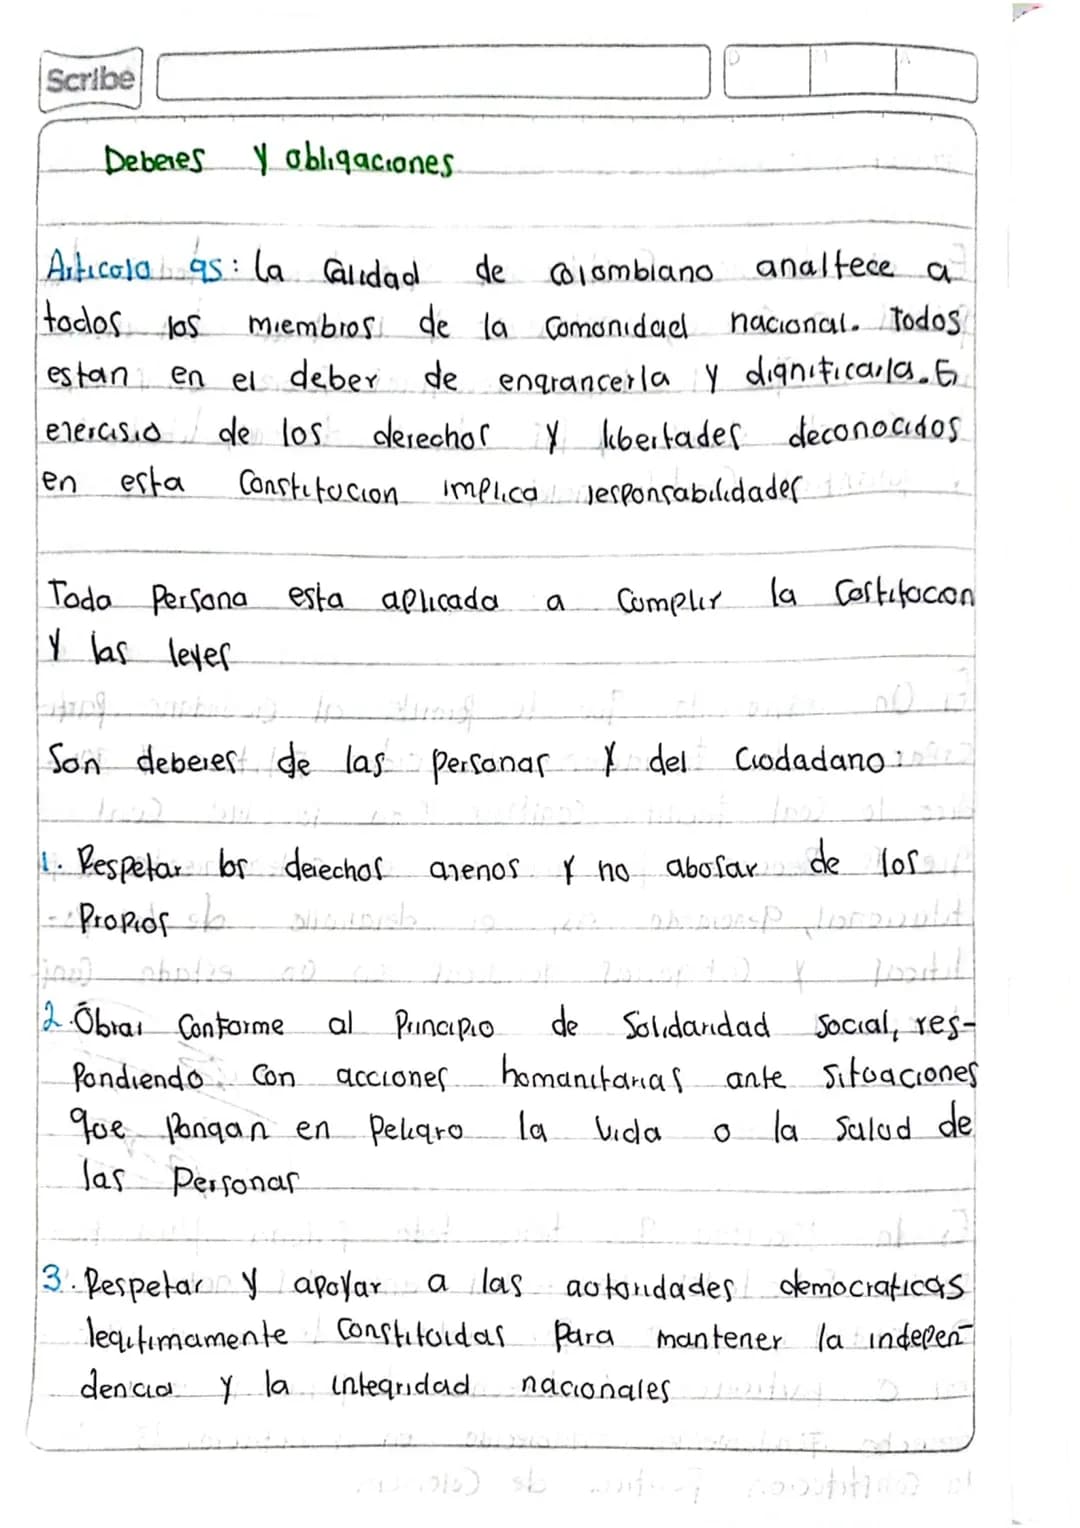 Scribe
Deberes y obligaciones
Articola 95: la Calidad de colombiano analtece a
todos los miembros de la comonidad nacional. Todos
estan en el deber de engrancerla y dignificarla. El
ejercisio de los derechos y libertades deconocidos
en esta Constitucion implica responsabilidades
Toda Persona esta aplicada a Complir la Costitocon
y las leyes
Son deberes de las personas y del Ciodadano:
1. Respetar los derechos ajenos y no abosar de los
Propios
2. Obrar Conforme al Principio de Solidaridad Social, res-
Pondiendo Con acciones homanitarias ante Sitoaciones
qoe Pongan en Peligro la Vida o la Salod de
las Personas
3. Respetar y apoyar a las aotoridades democraticas
legitimamente Constitoidas Para mantener la indepen-
dencia y la integridad nacionales